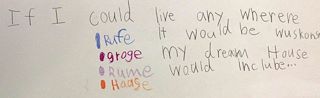 If I could live any wherere
It would be wuskonsn
my dream House
would Inclube...
Rufe
grage
Rume
Haase